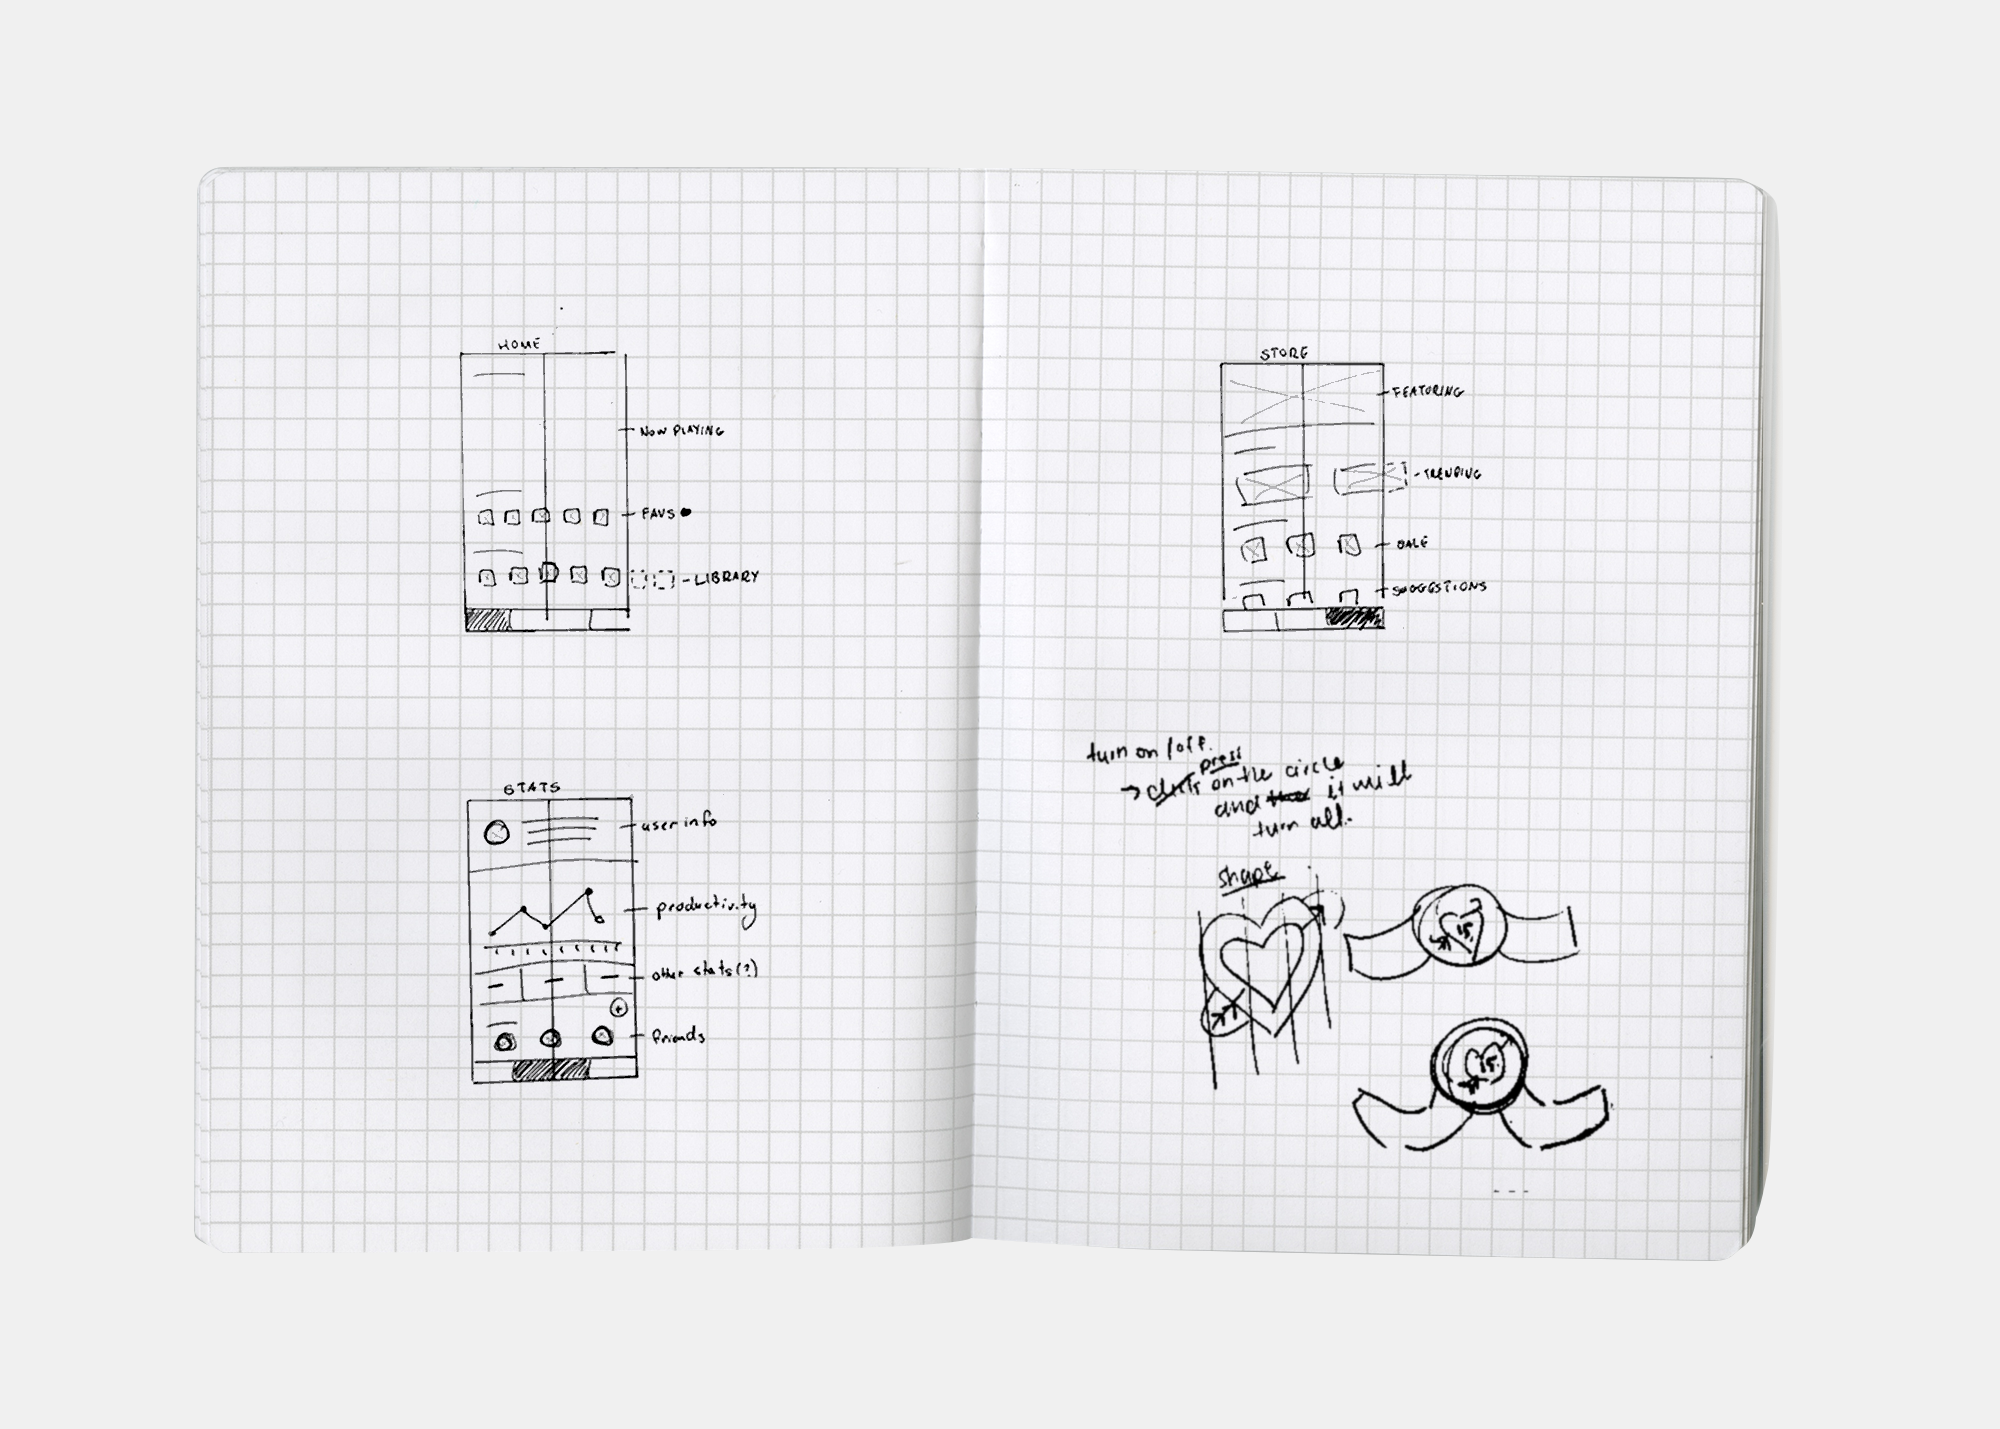 HOME
NOW PLAYING
FAVS
LIBRARY
STATS
user info
productivity
other stats(?)
friends
STORE
FEATURING
TRENDING
SALE
SUGGESTIONS
turn on/off.
press
→ click on the circle
and it will
turn all.
shape
15.
15.